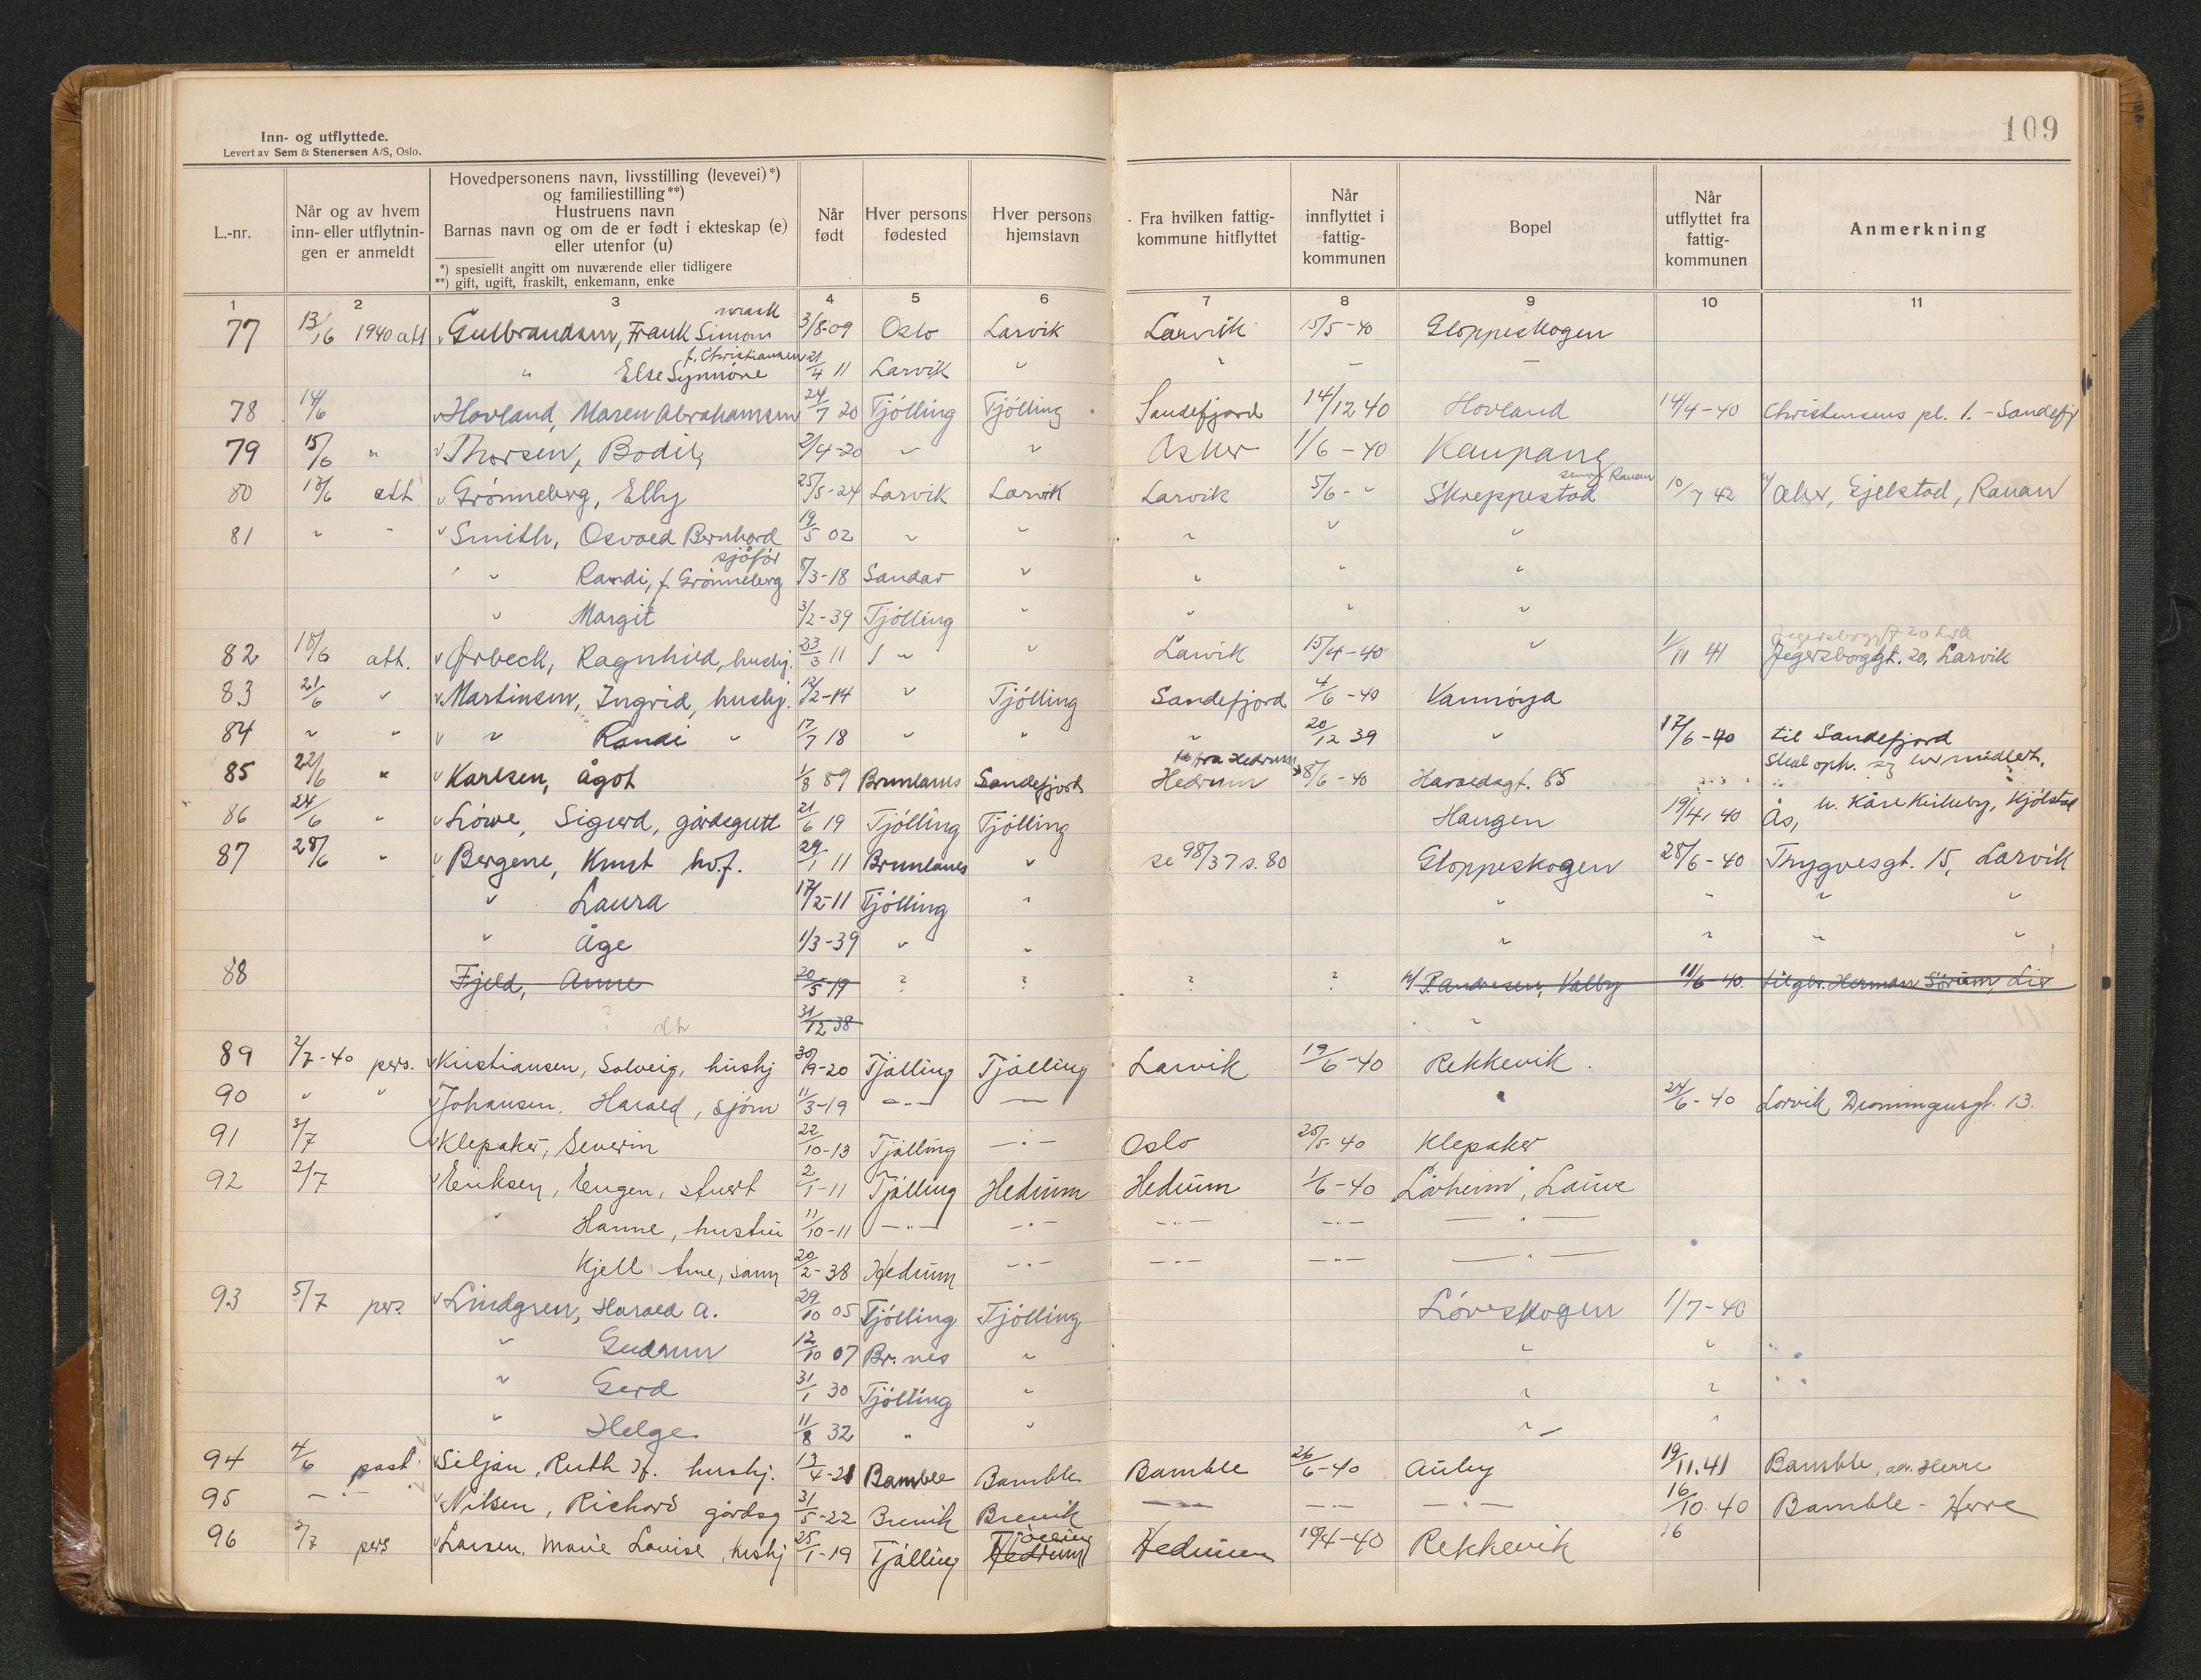 109
Inn- og utflyttede.
Levert av Sem & Stenersen A/S, Oslo.
L.-nr. | Når og av hvem inn- eller utflytnin- gen er anmeldt | Hovedpersonens navn, livsstilling (levevei) *) og familiestilling **) Hustruens navn Barnas navn og om de er født i ekteskap (e) eller utenfor (u) *) spesielt angitt om nuværende eller tidligere **) gift, ugift, fraskilt, enkemann, enke | Når født | Hver persons fødested | Hver persons hjemstavn | Fra hvilken fattig- kommune hitflyttet | Når innflyttet i fattig- kommunen | Bopel | Når utflyttet fra fattig- kommunen | Anmerkning
1 2 3 4 5 6 7 8 9 10 11
77 13/6 1940 att Gulbrandsen, Frank Simon 3/8-09 Oslo Larvik Larvik 15/5-40 Gloppeskogen
" Else Synnöve f. Christiansen 21/4 11 Larvik " " — —
78 14/6 Hovland, Maren Abrahamsen 24/7 20 Tjölling Tjölling Sandefjord 14/12 40 Hovland 14/4-40 Christensens pl. 1. - Sandefj
79 15/6 " Thorsen, Bodil 2/4-20 " " Asker 1/6-40 Kaupang
80 18/6 att Grönneberg, Elly 25/5-24 Larvik Larvik Larvik 5/6- " Skreppestad Rauan 10/7 42 Gjelstad, Rauan
81 " " Smith, Osvald Bernhard sjåför 19/5 02 " " " " "
" Randi, f. Grönneberg 8/3-18 Sandar " " " "
" Margit 3/2-39 Tjölling " " " "
82 18/6 att. Ørbeck, Ragnhild, hushj. 23/3 11 " " Larvik 15/4-40 " 1/11 41 Jegersborggt. 20, Larvik
83 21/6 " Martinsen, Ingrid, hushj. 12/2-14 " Tjölling Sandefjord 4/6-40 Vannöya
84 " " " Randi " 17/7 18 " " " 20/12 39 " 17/6-40 til Sandefjord
85 22/6 " Karlsen, Ågot 1/8 89 Brunlanes Sandefjord Hedrum fra Hedrum 8/6-40 Haraldsgt. 85 Skal oph. sg her midlert.
86 24/6 " Löwe, Sigurd, gårdsgutt 21/6 19 Tjölling Tjölling Haugen 19/4 40 Ås, h. Kåre Kirkeby, Kjölstad
87 28/6 " Bergene, Knut hv.f. 29/1 11 Brunlanes " se 98/37 s. 80 Gloppeskogen 28/6-40 Trygvesgt. 15, Larvik
" Laura 17/2-11 Tjölling " " " " "
" Åge 1/3-39 " " " " " "
88 Fjeld, Anne 20/5-19 ? ? ? ? P. Andresen, Valby 11/6-40. til gbr. Herman Sörum, Lier
? 31/12 38 "
89 2/7-40 pers. Kristiansen, Solveig, hushj 30/9-20 Tjölling Tjölling Larvik 19/6-40 Rekkevik.
90 " " Johansen, Harald, sjöm 11/3-19 — — " 24/6-40 Larvik Dronningensgt. 13.
91 3/7 Klepaker, Severin 22/10-13 Tjölling —"— Oslo 25/5-40 Klepaker
92 2/7 Eriksen, Eugen, stuert 2/1-11 Tjölling Hedrum Hedrum 1/6-40 "Lövheim", Lauve
" Hanne, hustru 11/10-11 —"— —"— —"— —"— —"—
Kjell Arne, sönn 20/2-38 Hedrum —"— —"— —"— —"—
93 5/7 pers. Lindgren, Harald A. 29/10 05 Tjölling Tjölling Löveskogen 1/7-40
" Gudrun 12/10 07 Br.nes " " "
" Gerd 31/1 30 Tjölling " " "
" Helge 11/8 32 " " " "
94 4/6 post Siljan, Ruth hushj. 13/4-21 Bamble Bamble Bamble 26/6-40 Auby 19/11.41 Bamble, adr. Herre
95 —"— Nilsen, Richard gårdsg 31/5-22 Brevik Brevik —"— —"— —"— 16/10.40 Bamble - Herre
96 5/7 pers Larsen, Marie Lovise, hushj 25/1-19 Tjölling Tjölling Hedrum Hedrum 19/4-40 Rekkevik 16